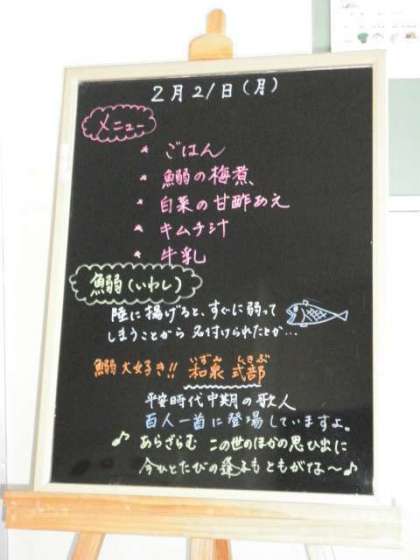 2月21日(月)
メニュー
* ごはん
* 鰯の梅煮
* 白菜の甘酢あえ
* キムチ汁
* 牛乳
鰯(いわし)
陸に揚げると、すぐに弱って
しまうことから名付けられたとか…
鰯大好き!! 和泉式部
いずみ しきぶ
平安時代中期の歌人
百人一首に登場していますよ。
♪ あらざらむ この世のほかの思ひ出に
今ひとたびの逢ふもともがな〜♪